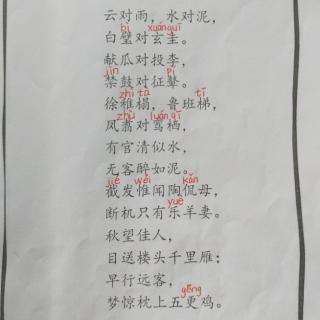 云对雨，水对泥，
bì xuánguī
白璧对玄圭。
献瓜对投李，
jìn pí
禁鼓对征鼙。
zhì tà tī
徐稚榻，鲁班梯，
zhù luánqī
凤翥对鸾栖。
有官清似水，
无客醉如泥。
jié wéi kǎn
截发惟闻陶侃母，
yuè
断机只有乐羊妻。
秋望佳人，
目送楼头千里雁；
早行远客，
gēng
梦惊枕上五更鸡。